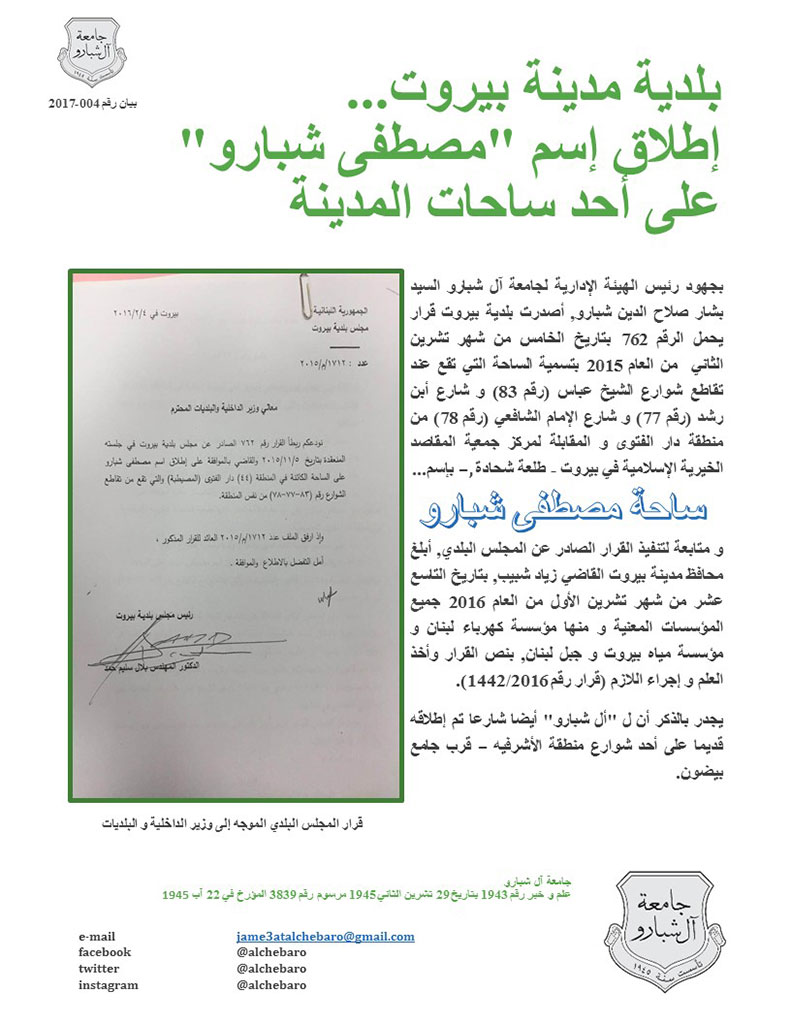 جامعة
آل شبارو
تأسست سنة ١٩٤٥
بيان رقم 004-2017
بلدية مدينة بيروت...
إطلاق إسم "مصطفى شبارو"
على أحد ساحات المدينة
بجهود رئيس الهيئة الإدارية لجامعة آل شبارو السيد
بشار صلاح الدين شبارو, أصدرت بلدية بيروت قرار
يحمل الرقم 762 بتاريخ الخامس من شهر تشرين
الثاني من العام 2015 بتسمية الساحة التي تقع عند
تقاطع شوارع الشيخ عباس (رقم 83) و شارع أبن
رشد (رقم 77) و شارع الإمام الشافعي (رقم 78) من
منطقة دار الفتوى و المقابلة لمركز جمعية المقاصد
الخيرية الإسلامية في بيروت - طلعة شحادة ,- بإسم...
ساحة مصطفى شبارو
و متابعة لتنفيذ القرار الصادر عن المجلس البلدي, أبلغ
محافظ مدينة بيروت القاضي زياد شبيب, بتاريخ التاسع
عشر من شهر تشرين الأول من العام 2016 جميع
المؤسسات المعنية و منها مؤسسة كهرباء لبنان و
مؤسسة مياه بيروت و جبل لبنان, بنص القرار وأخذ
العلم و إجراء اللازم (قرار رقم 1442/2016).
يجدر بالذكر أن ل "أل شبارو" أيضا شارعا تم إطلاقه
قديما على أحد شوارع منطقة الأشرفيه – قرب جامع
بيضون.
الجمهورية اللبنانية
مجلس بلدية بيروت
بيروت في ٢٠١٦/٢/٤
عدد : ١٧١٢/م/٢٠١٥
معالي وزير الداخلية والبلديات المحترم
نودعكم ربطاً القرار رقم ٧٦٢ الصادر عن مجلس بلدية بيروت في جلسته
المنعقدة بتاريخ ٢٠١٥/١١/٥ والقاضي بالموافقة على إطلاق اسم مصطفى شبارو
على الساحة الكائنة في المنطقة (٤٤) دار الفتوى (المصيطبة) والتي تقع من تقاطع
الشوارع رقم (٨٣-٧٧-٧٨) من نفس المنطقة.
وإذ ارفق الملف عدد ١٧١٢/م/٢٠١٥ العائد للقرار المذكور ،
آمل التفضل بالاطلاع والموافقة .
رئيس مجلس بلدية بيروت
الدكتور المهندس بلال سليم حمد
قرار المجلس البلدي الموجه إلى وزير الداخلية و البلديات
جامعة آل شبارو
علم و خبر رقم 1943 بتاريخ 29 تشرين الثاني 1945 مرسوم رقم 3839 المؤرخ في 22 آب 1945
e-mail jame3atalchebaro@gmail.com
facebook @alchebaro
twitter @alchebaro
instagram @alchebaro
جامعة
آل شبارو
تأسست سنة ١٩٤٥